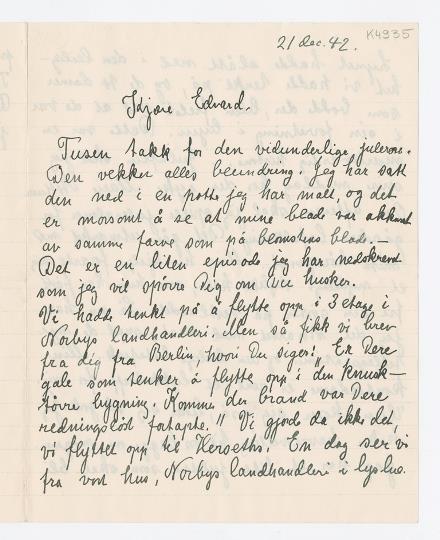 21 dec. 42.
K4935
Kjære Edvard.
Tusen takk for den vidunderlige julerose.
Den vekker alles beundring. Jeg har satt
den ned i en potte jeg har malt, og det
er morsomt å se at mine blade var akkurat
av samme farve som på blomstens blade. —
Det er en liten episode jeg har nedskrevet
som jeg vil spörre Dig om Du husker.
Vi hadde tenkt på å flytte opp i 3 etage i
Norbys landhandleri. Men så fikk vi brev
fra dig fra Berlin, hvori Du siger: „Er Dere
gale som tenker å flytte opp i den knusk-
törre bygning. Kommer der brand var Dere
redningslöst fortapte." Vi gjorde da ikke det,
vi flyttet opp til Kerseths. En dag ser vi
fra vort hus, Norbys landhandleri i lys lue.